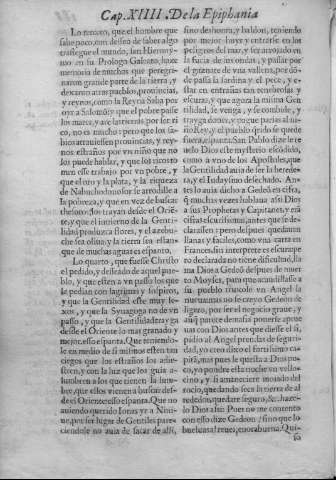 Cap. XIIII. De la Epiphania
Lo tercero, que el hombre que
sabe poco, con desseo de saber algo
trasiegue el mundo, san Hierony-
mo en su Prologo Galeato, haze
memoria de muchos que peregri-
naron grande parte de la tierra, y
dexaron atras pueblos, prouincias,
y reynos, como la Reyna Saba por
oyr a Salomõ: y que el pobre passe
los mares, y are las tierra por ser ri
co, no es mucho: pero que los sa-
bios atrauiessen prouincias, y rey-
nos estraños por vn niño que no
les puede hablar, y que los ricos to
men esse trabajo por vn pobre, y
que el oro y la plata, y la riqueza
de Nabuchodonosor se arrodille a
la pobreza, y que en vez de buscar
thesoros los trayan desde el Oriē-
te, y que el inuierno de la Genti-
lidad produzca flores, y el azebu-
che sea oliua, y la tierra sea estanque
de muchas aguas es espanto.
Lo quarto, que fuesse Christo
el pedido, y deseado de aquel pue-
blo, y que esten a vn passo los que
le pedian con lagrimas y sospiros,
y que la Gentilidad este muy le-
xos, y que la Synagoga no de vn
passo, y que la Gentilidad trayga
desde el Oriente lo mas granado y
mejor, esso espanta. Que teniendo-
le en medio de si mismo esten tan
ciegos que los estraños los alum-
bren, y con la luz que los guia a-
lumbren a los que tienen la lum-
bre, que ellos vienen a buscar des-
de el Oriente esso espanta. Que no
auiendo querido Ionas yr a Nini-
ue, por ser lugar de Gentiles pare-
ciendole no auia de sacar de alli,
sino deshonra, y baldon, teniendo
por mejor huyr y entrarse en los
peligros del mar, y ser arrojado en
la furia de sus ondas, y passar por
el gaznate de vna vallena, por dõ-
de passa la sardina y el pece, y e-
star en entrañas tan tenebrosas y
escuras, y que agora la misma Gen
tilidad, se venga, y se combide, y
trayga dones, y que sue parias al ni-
ño Rey, y el pueblo quede se quede
fuera, espanta. San Pablo dize le re
uelo Dios este mysterio escõdido,
como a vno de los Apostoles, que
la Gentilidad auia de ser la herede-
ra, y el Iudaysmo desechado. An-
tes lo auia dicho a Gedeõ en cifra,
q̃ muchas vezes hablaua assi Dios
a sus Prophetas y Capitanes, y era
cifra tan escurissima, antes que se de
clarassen: pero despues quedaron
llanas y faciles, como vna carta en
Frances, si vn interprete es escura pe
ro declarada no tiene dificultad, lla
ma Dios a Gedeõ despues de muer
to Moysen, para que acaudillasse a
su pueblo truxole vn Angel la
nueua mas no se creyo Gedeon de
ligero, por ser el negocio graue, y
aũq̃ parece demasia ponerse apue
stas con Dios antes que diesse el si,
pidio al Angel prendas de seguri-
dad, yo creo dixo el fortissimo ca-
pitã, mas pues le questa a Dios po-
co, yo pondre esta noche vn vello-
cino, y si amaneciere mojado del
rocio, quedando seca la tierra de al
rededor, quedare seguro, &c. haze-
lo Dios assi: Pues no me contento
con esso dize Gedeon, sino que lo
buelua al reues, en orabuena. Qui-
so